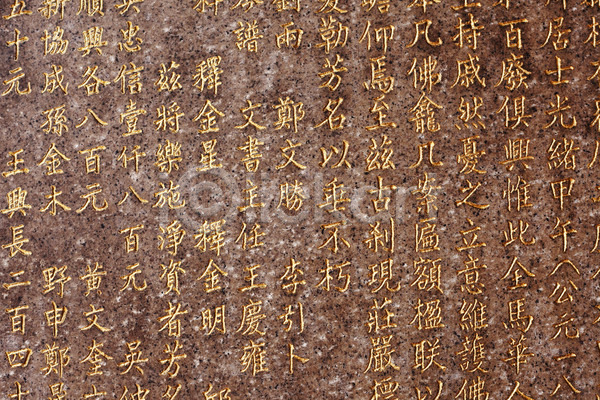 居士光緒甲午（公元一八
百廢俱興惟此金馬華人
持戚然憂之立意維護佛
本凡佛龕几案匾額楹聯以
瞻仰焉至茲古刹現莊嚴
爰勒芳名以垂不朽
雨 鄭文勝 李引卜
譜 文書主任王慶雍
釋金星 釋金明 邱
茲將樂施淨資者芳名
吳忠信壹仟八百元 吳
順興各八百元 黃文奎
新協成孫金木 野申鄭
五十元 王興長二百四十